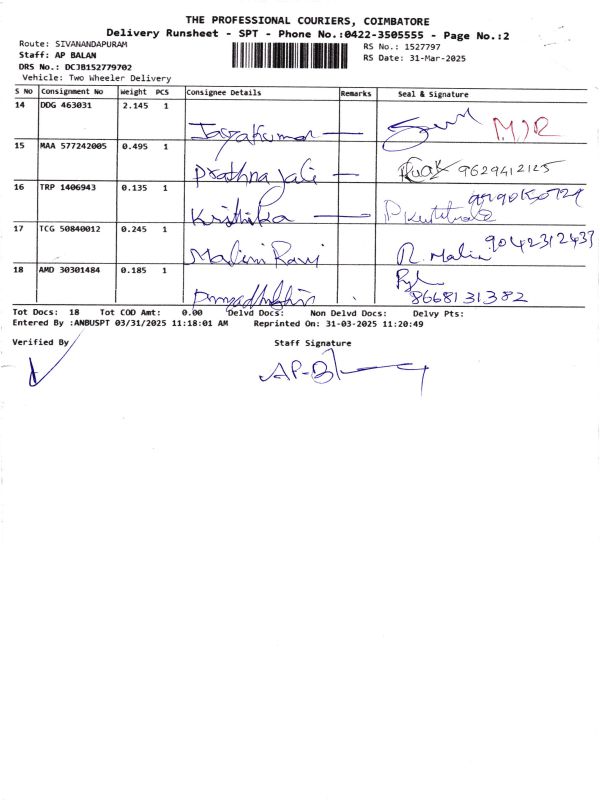 THE PROFESSIONAL COURIERS, COIMBATORE
Delivery Runsheet - SPT - Phone No.:0422-3505555 - Page No.:2
Route: SIVANANDAPURAM RS No.: 1527797
Staff: AP BALAN RS Date: 31-Mar-2025
DRS No.: DCJB152779702
Vehicle: Two Wheeler Delivery
S No Consignment No Weight PCS Consignee Details Remarks Seal & Signature
14 DDG 463031 2.145 1
Jayakumar
15 MAA 577242005 0.495 1
Prathnajali 9629412125
16 TRP 1406943 0.135 1
Krithika
17 TCG 50840012 0.245 1
Malini Ravi R. Malini 9042312433
18 AMD 30301484 0.185 1
8668131382
Tot Docs: 18 Tot COD Amt: 0.00 Delvd Docs: Non Delvd Docs: Delvy Pts:
Entered By :ANBUSPT 03/31/2025 11:18:01 AM Reprinted On: 31-03-2025 11:20:49
Verified By Staff Signature